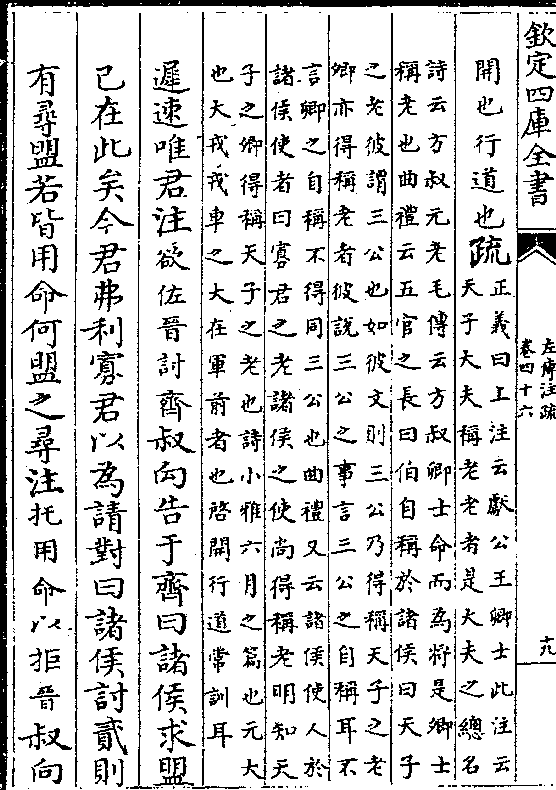 欽定四庫全書
左傳注疏
卷四十六
十九
開也行道也疏正義曰上注云獻公王卿士此注云
天子大夫稱老老者是大夫之總名
詩云方叔元老毛傳云方叔卿士命而為將是卿士
稱老也曲禮云五官之長曰伯自稱於諸侯曰天子
之老彼謂三公也如彼文則三公乃得稱天子之老
卿亦得稱老者彼說三公之事言三公之自稱耳不
言卿之自稱不得同三公也曲禮又云諸侯使人於
諸侯使者曰寡君之老諸侯之使尚得稱老明知天
子之卿得稱天子之老也詩小雅六月之篇也元大
也大戎戎車之大在軍前者也啓開行道常訓耳
遲速唯君注欲佐晉討齊叔向告于齊曰諸侯求盟
已在此矣今君弗利寡君以為請對曰諸侯討貳則
有尋盟若皆用命何盟之尋注托用命以拒晉叔向